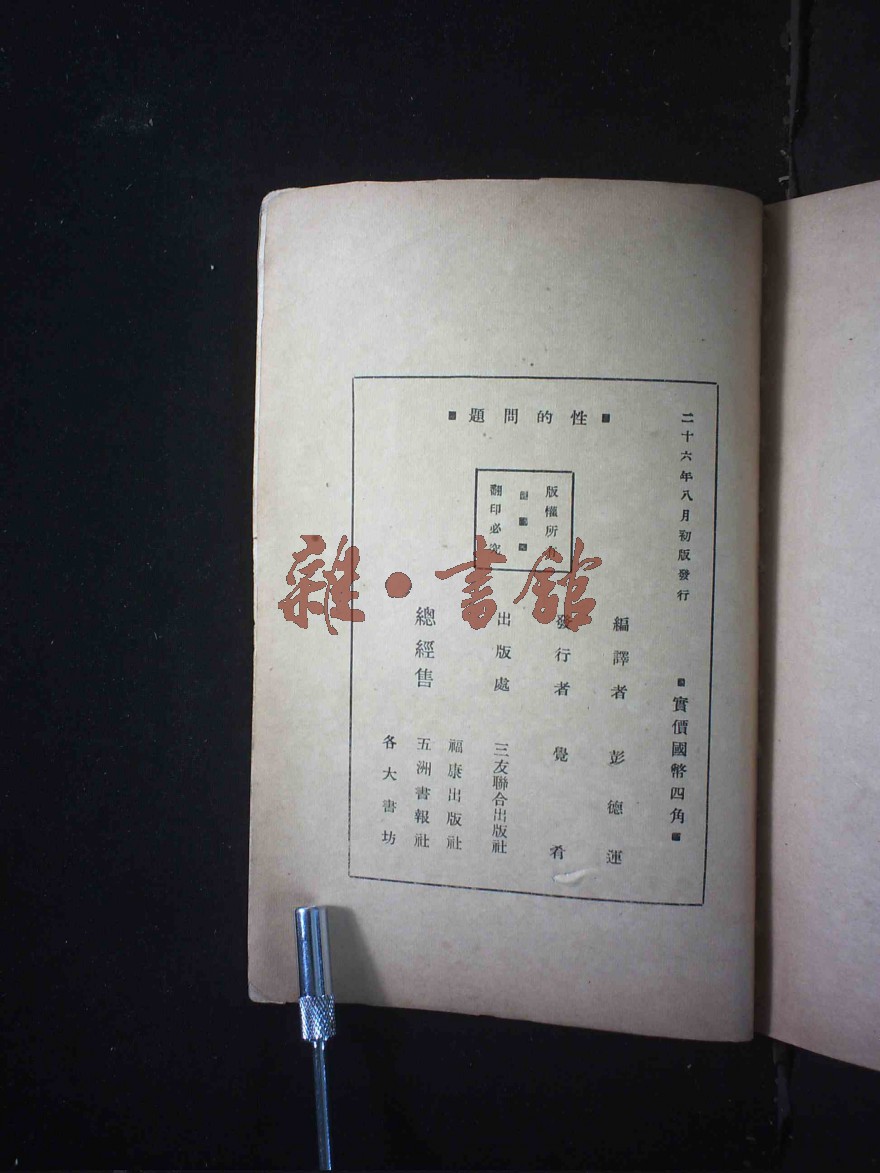 二十六年八月初版發行
實價國幣四角
性的問題
版權所有
翻印必究
編譯者 彭德運
發行者 覺肴
出版處 三友聯合出版社
總經售 福康出版社
五洲書報社
各大書坊
雜·書館